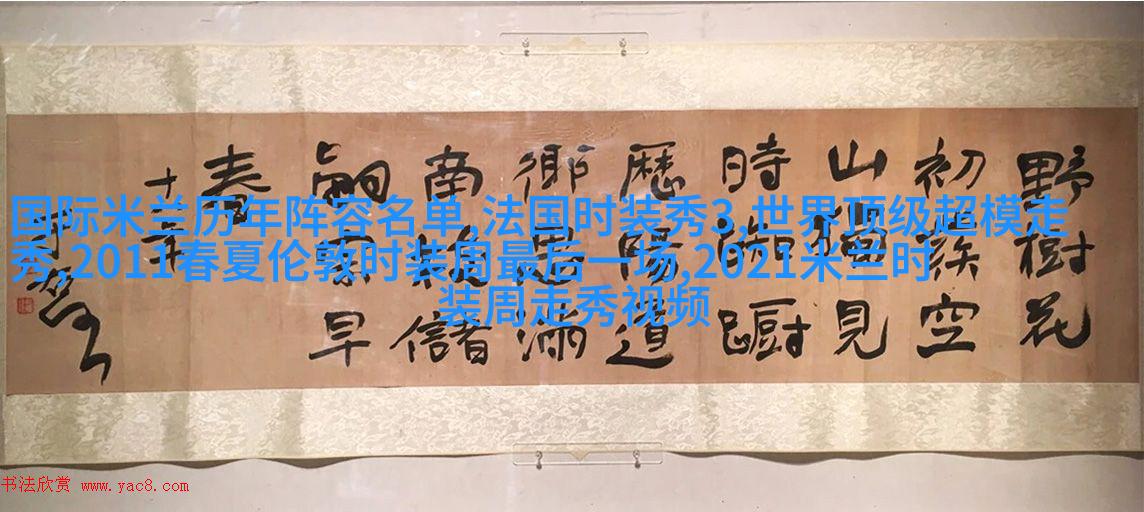 野樹花
初發空
山獨見
時踟躕
歷陽道
鄉思滿
南枝儲
嗣宗早
春
十年
国际米兰历年阵容名单,法国时装秀3,世界顶级超模走
秀,2011春夏伦敦时装周最后一场,2021米兰时
装周走秀视频
书法欣赏 www.yac8.com